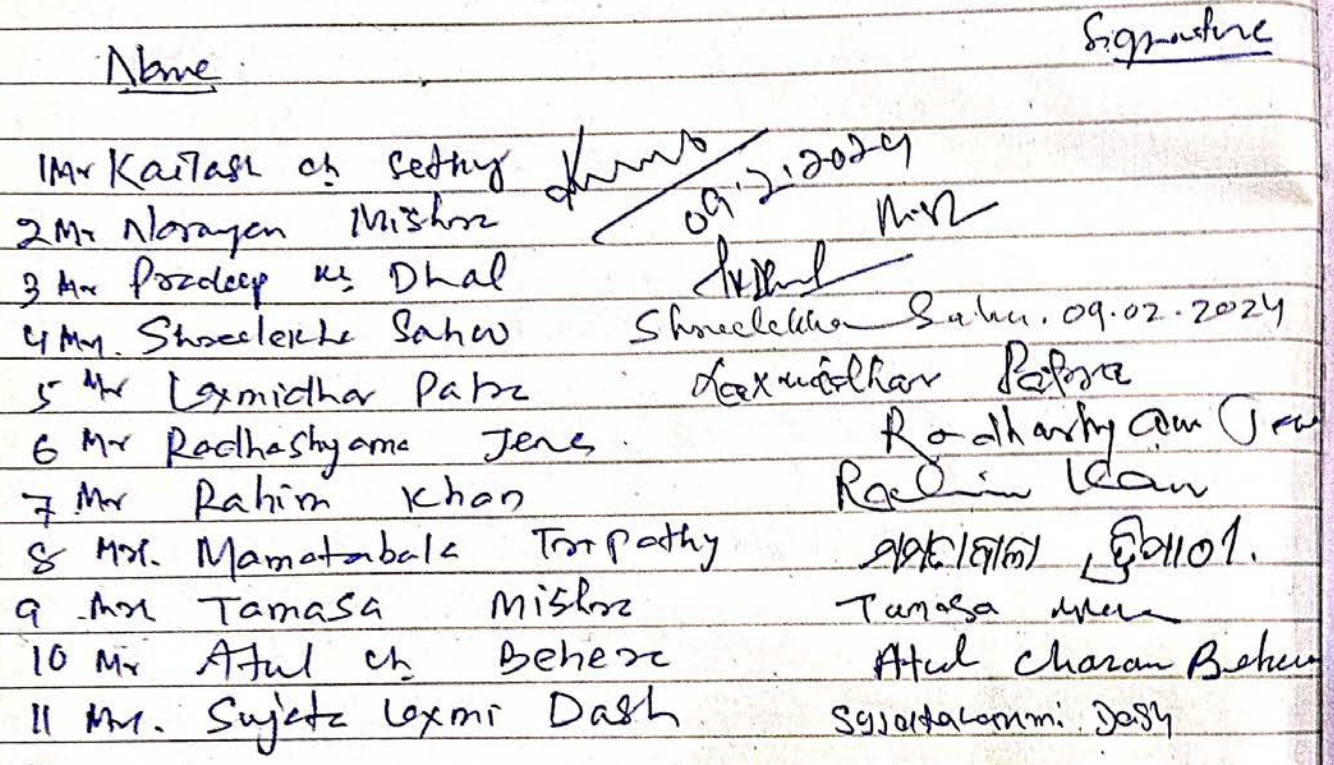 Name Signature
1 Mr Kailash ch Sethy 09.2.2024
2 Mr Narayan Mishra
3 Mr Pradeep Kr Dhal
4 Mrs. Shreelekha Sahoo Shreelekha Sahu. 09.02.2024
5 Mr Laxmidhar Patra Laxmidhar Patra
6 Mr Radhashyama Jena Radhashyam
7 Mr Rahim Khan Rahim Khan
8 Mrs. Mamatabala Tripathy ମମତାବାଳା ତ୍ରିପାଠୀ.
9 Mrs Tamasa Mishra Tamasa
10 Mr Atul ch Behera Atul Charan Behera
11 Mrs. Sujata Laxmi Dash Dash